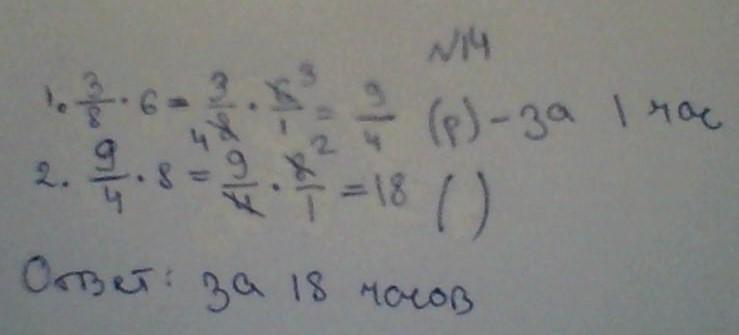 №14
1. 3/8 · 6 = 3/8 4 · 6/1 3 = 9/4 (р) - за 1 час
2. 9/4 · 8 = 9/4 · 8/1 2 = 18 ( )
Ответ: за 18 часов